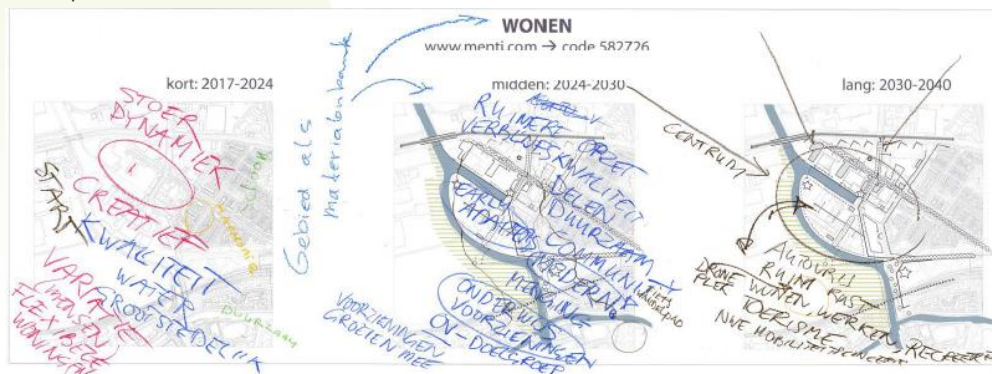 WONEN
www.menti.com → code 582726
kort: 2017-2024
midden: 2024-2030
lang: 2030-2040
Gebied als
materialenbank
STOER
DYNAMIEK
1
CREATIEF
START
KWALITEIT
WATER
GROOTSTEDELIJK
VARIATIE
MENSEN
FLEXIBELE
WONINGEN
DUURZAAM
RUIMERE OPZET
VERBLIJFSKWALITEIT
DELEN
DUURZAAM
COMMUNITY
MODERNE
MENGING
ONDERWIJS
VOORZIENINGEN
OV-DOELGROEP
VOORZIENINGEN
GROEIEN MEE
FIETS
WANDELPAD
CENTRUM
AUTOVRIJ
RUIMTE RUST
DRONE WONEN WERKEN, RECREËREN
FLEX TOERISME
NWE MOBILITEITSCONCEPT